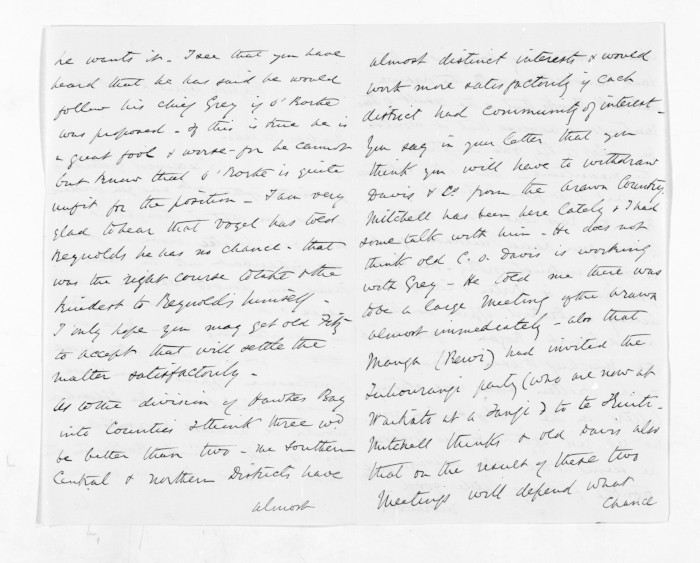 he wants it - I see that you have
heard that he has said he would
follow his chief Grey if O'Rorke
was proposed - if this is true he is
a great fool & worse - for he cannot
but know that O'Rorke is quite
unfit for the position - I am very
glad to hear that Vogel has told
Reynolds he has no chance - that
was the right course to take & the
kindest to Reynolds himself -
I only hope you may get old Fitz-
to accept that will settle the
matter satisfactorily -
As to the division of Hawkes Bay
into Counties I think three wd
be better than two - the Southern
Central & Northern Districts have
almost
almost distinct interests & would
work more satisfactorily if each
district had community of interest -
You say in your letter that you
think you will have to withdraw
Davis & Co from the Arawa Country
Mitchell has been here lately & I had
some talk with him - He does not
think old C. O. Davis is working
with Grey - He told me there was
to be a large Meeting of the Arawa
almost immediately - also that
Manga (Rewi) had invited the
Tuhourangi party (who are now at
Waikato at a Tangi) to Te Kuiti -
Mitchell thinks & old Davis also
that on the result of these two
Meetings will depend what
Chance